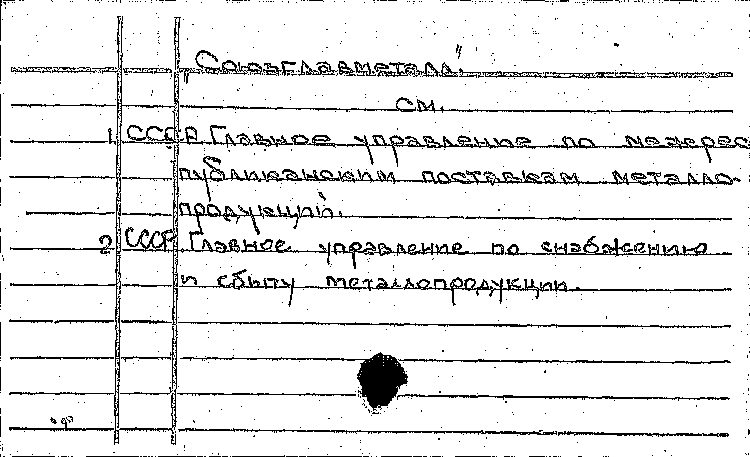 „Союзглавметалл."
см.
1. СССР. Главное управление по межрес
публиканским поставкам металло-
продукций.
2 СССР. Главное управление по снабжению
и сбыту металлопродукции.